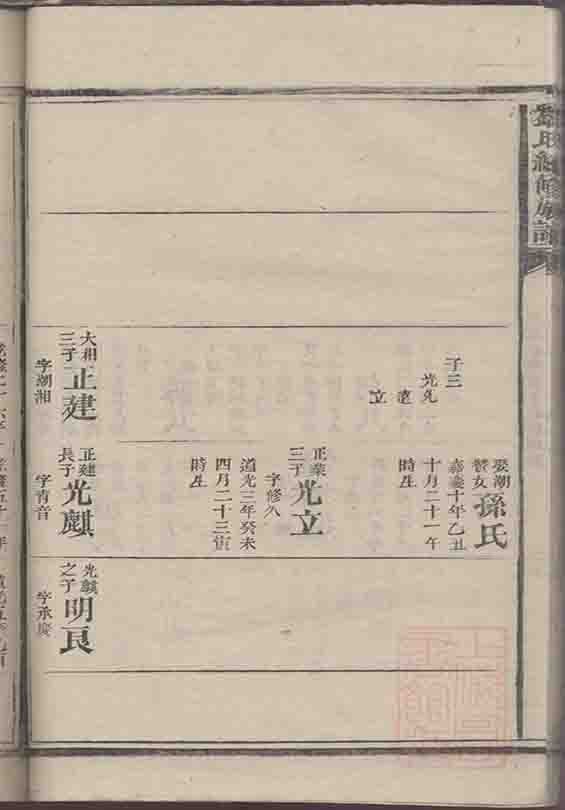 氏續修族譜
子三
光先
遠
立
娶潮
贊女
孫氏
嘉慶十年乙丑
十月二十一午
時生
正業
三子
光立
字修久
道光三年癸未
四月二十三寅
時生
大相
三子
正建
字潮湘
正建
長子
光麒
字青音
光麒
之子
明良
字承慶